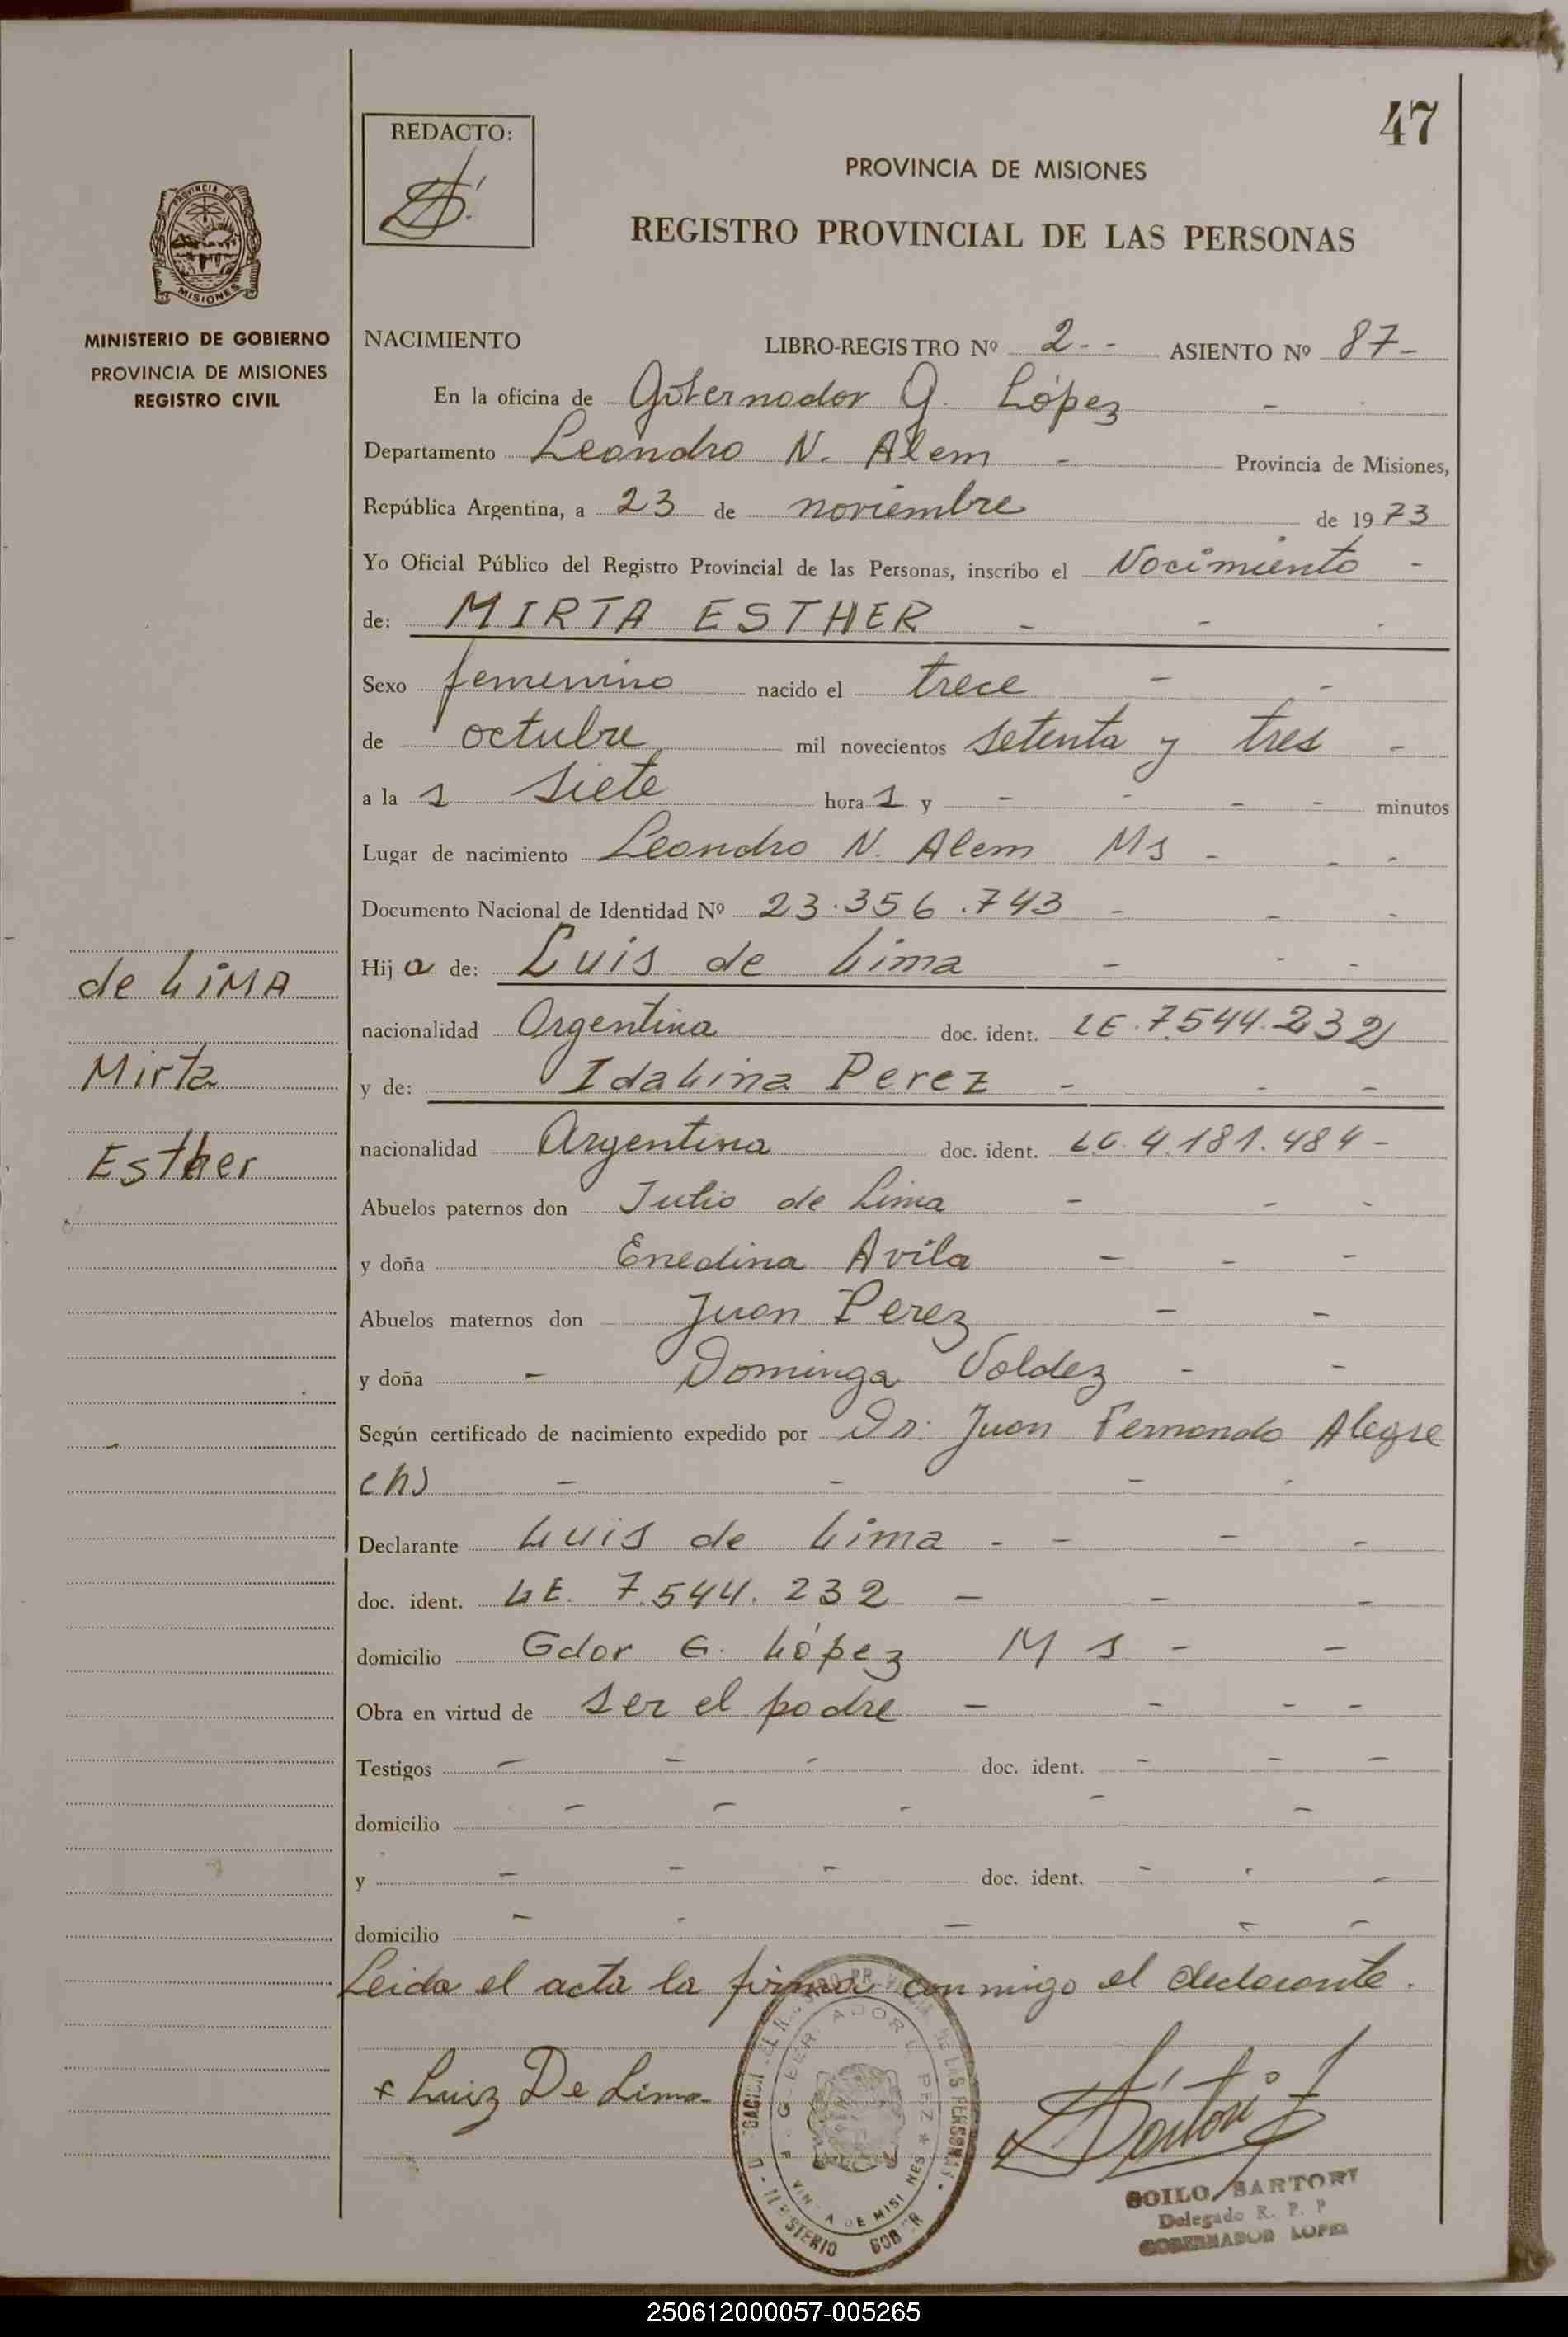 47
REDACTO:
PROVINCIA DE MISIONES
REGISTRO PROVINCIAL DE LAS PERSONAS
PROVINCIA DE
MISIONES
MINISTERIO DE GOBIERNO
PROVINCIA DE MISIONES
REGISTRO CIVIL
NACIMIENTO LIBRO-REGISTRO Nº 2 - - ASIENTO Nº 87 -
En la oficina de Gobernador G. López -
Departamento Leandro N. Alem - Provincia de Misiones,
República Argentina, a 23 de noviembre de 1973
Yo Oficial Público del Registro Provincial de las Personas, inscribo el Nacimiento -
de: MIRTA ESTHER - - -
Sexo femenino nacido el trece - -
de octubre mil novecientos setenta y tres -
a la s siete hora s y - - - - minutos
Lugar de nacimiento Leandro N. Alem Ms - - -
Documento Nacional de Identidad Nº 23.356.743 - - -
Hij a de: Luis de Lima - - -
nacionalidad Argentina doc. ident. LE. 7.544.232
y de: Idalina Perez - - -
nacionalidad Argentina doc. ident. LC. 4.181.484 -
Abuelos paternos don Julio de Lima - - -
y doña Enedina Avila - - -
Abuelos maternos don Juan Perez - -
y doña - Dominga Valdez - -
Según certificado de nacimiento expedido por Dr. Juan Fernando Alegre
(h) - - - -
Declarante Luis de Lima - - - -
doc. ident. LE. 7.544.232 - - -
domicilio Gdor G. López Ms - -
Obra en virtud de ser el padre - - - -
Testigos - - - doc. ident. - - -
domicilio - - - - -
y - - - doc. ident. - - -
domicilio - - - - -
Leida el acta la firma conmigo el declarante.
de LiMA
Mirta
Esther
Luiz De Lima
Sartori
SOILO SARTORI
Delegado R. P. P
GOBERNADOR LOPEZ
250612000057-005265